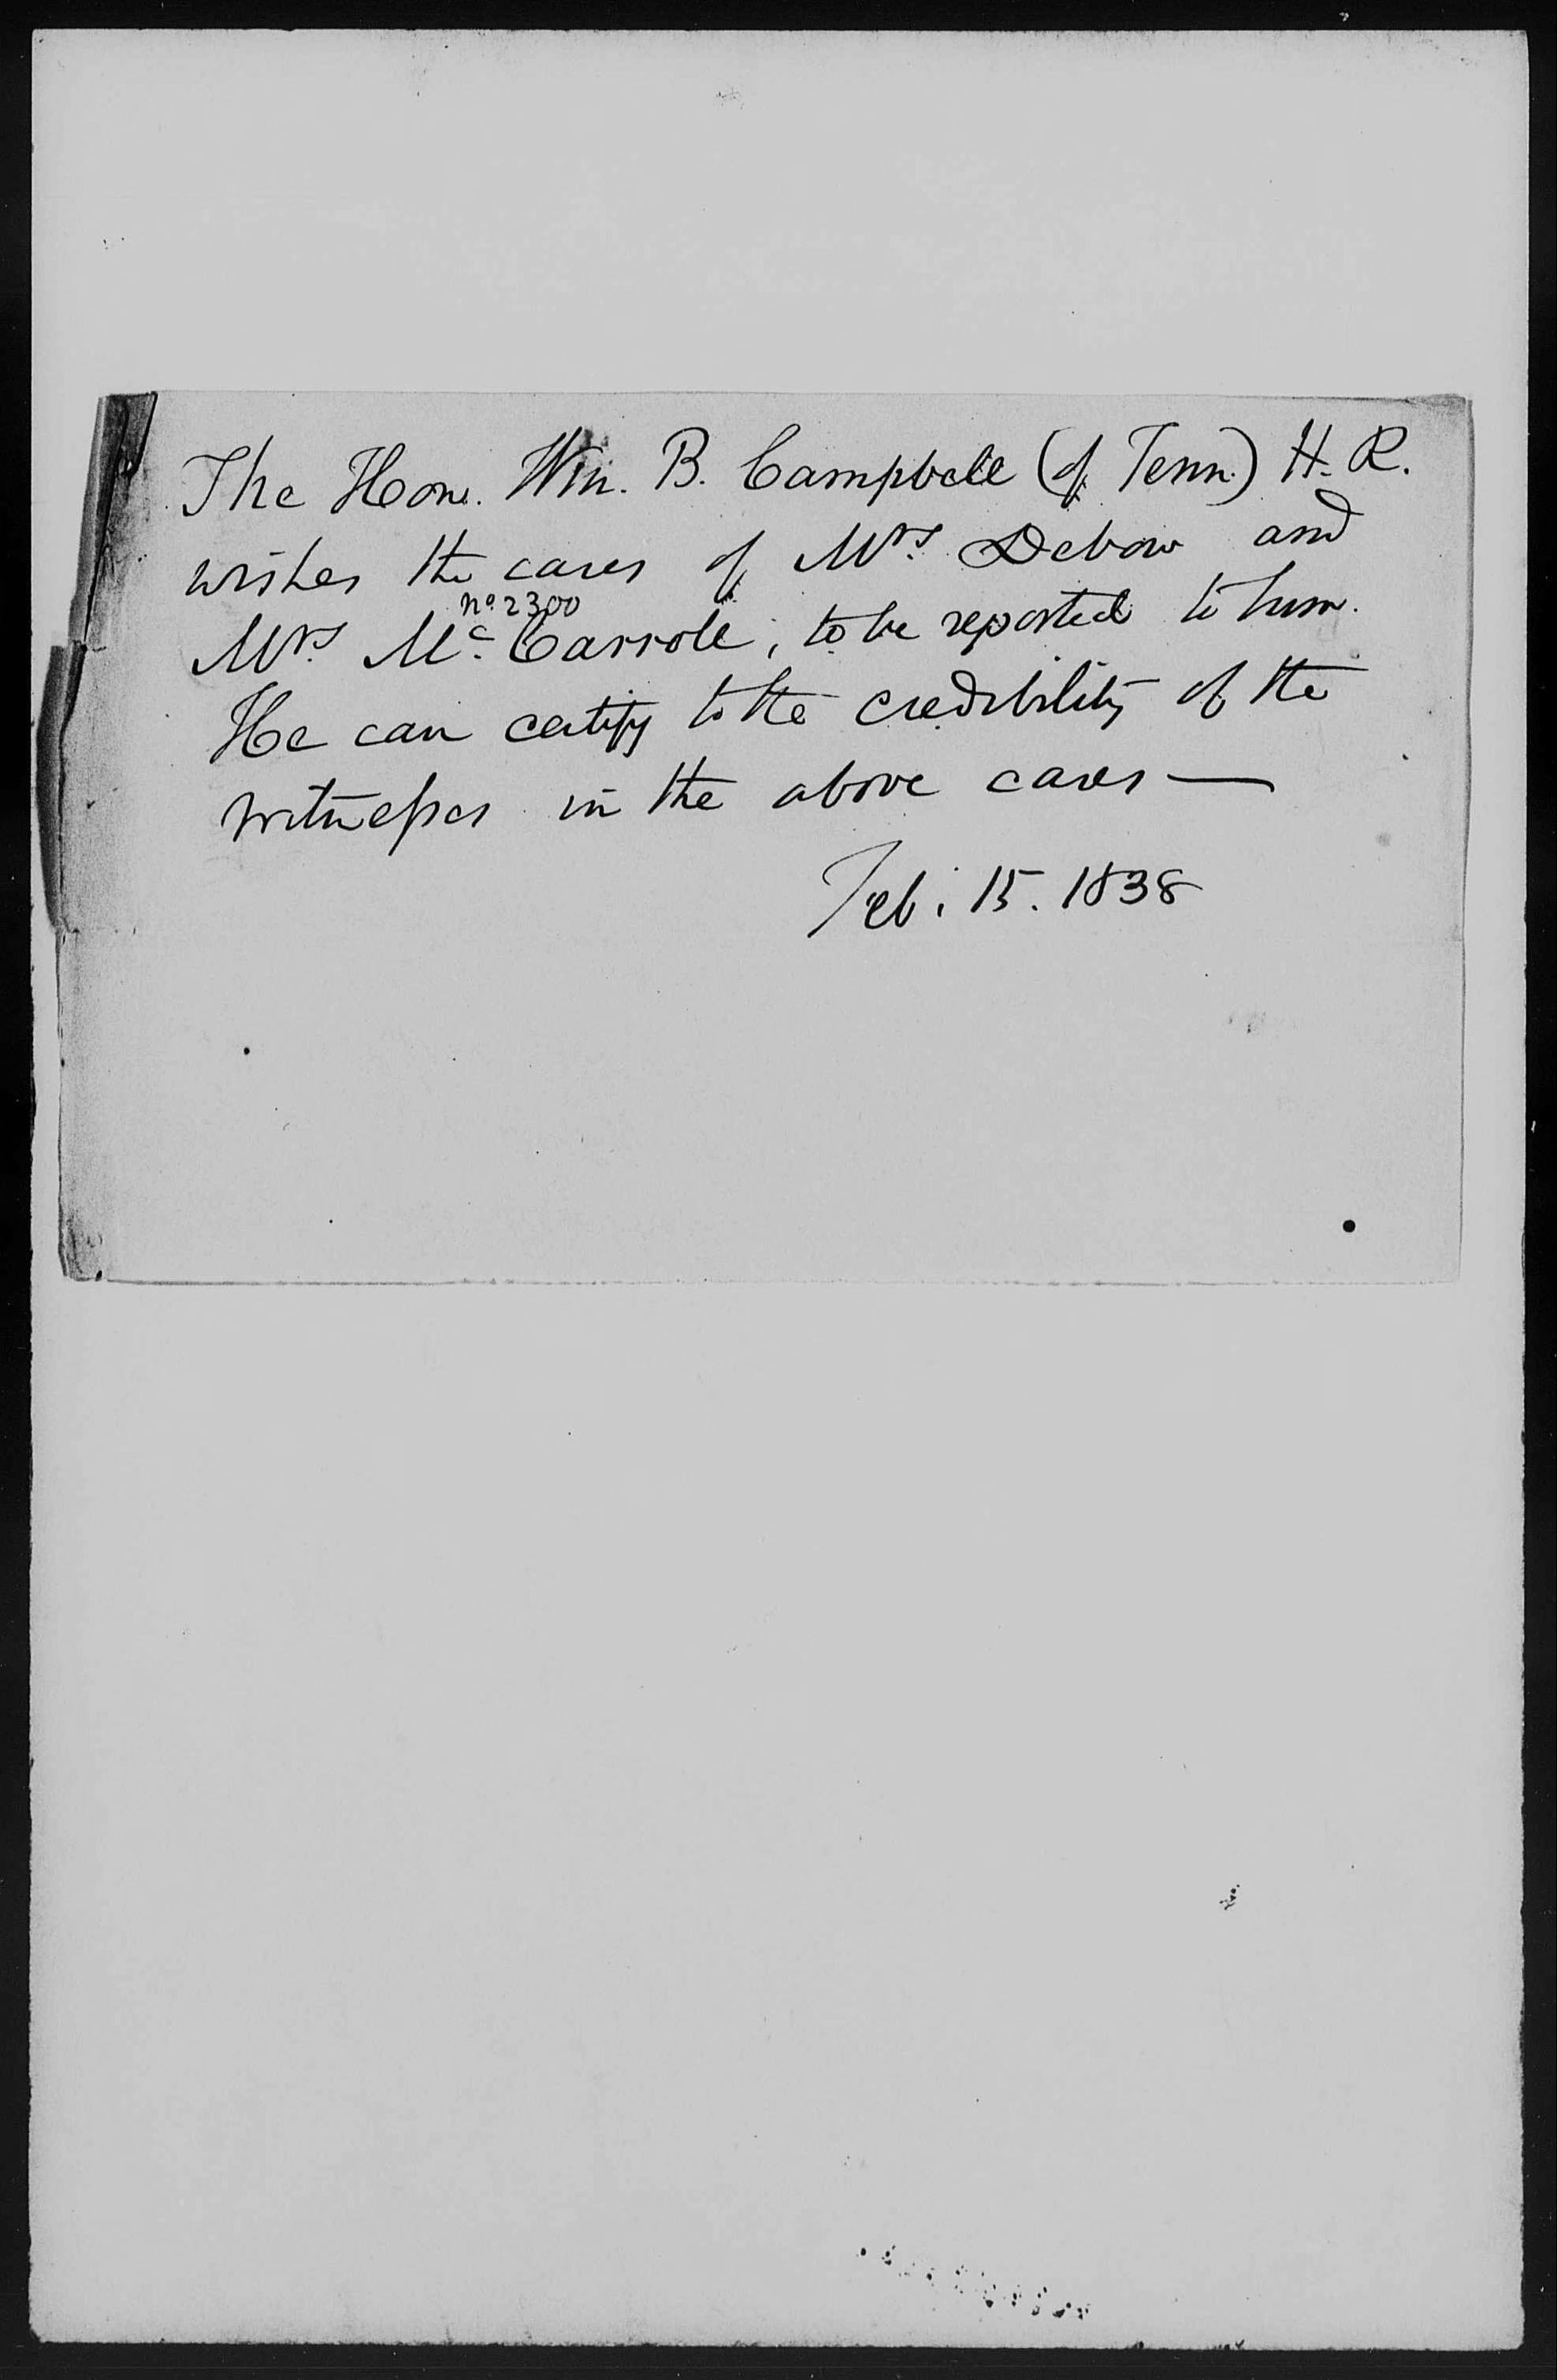 The Hon. Wm. B. Campbell (of Tenn.) H. R.
wishes the cases of Mrs. Debow and
No. 2300
Mrs. Mc.Carroll, to be reported to him.
He can certify to the credibility of the
witnesses in the above cases —
Feb. 15. 1838